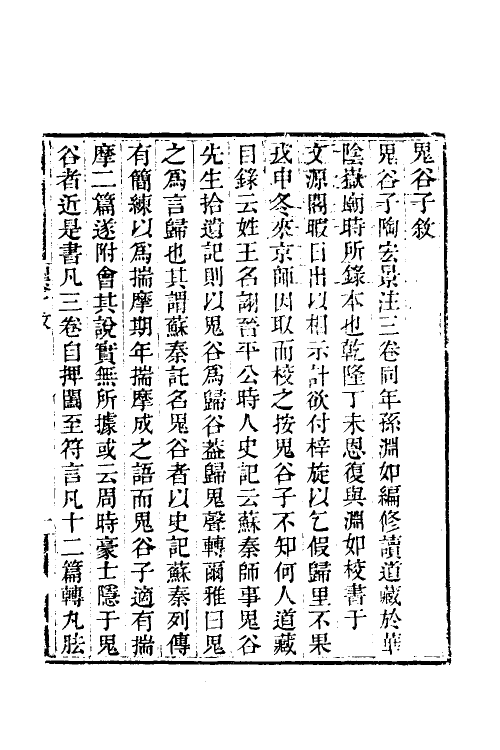 鬼谷子敘
鬼谷子陶宏景注三卷同年孫淵如編修讀道藏於華
陰嶽廟時所錄本也乾隆丁未恩復與淵如校書于
文源閣暇日出以相示計欲付梓旋以乞假歸里不果
戊申冬來京師因取而校之按鬼谷子不知何人道藏
目錄云姓王名詡晉平公時人史記云蘇秦師事鬼谷
先生拾遺記則以鬼谷爲歸谷蓋歸鬼聲轉爾雅曰鬼
之爲言歸也其謂蘇秦託名鬼谷者以史記蘇秦列傳
有簡練以爲揣摩期年揣摩成之語而鬼谷子適有揣
摩二篇遂附會其說實無所據或云周時豪士隱于鬼
谷者近是書凡三卷自捭闔至符言凡十二篇轉丸胠